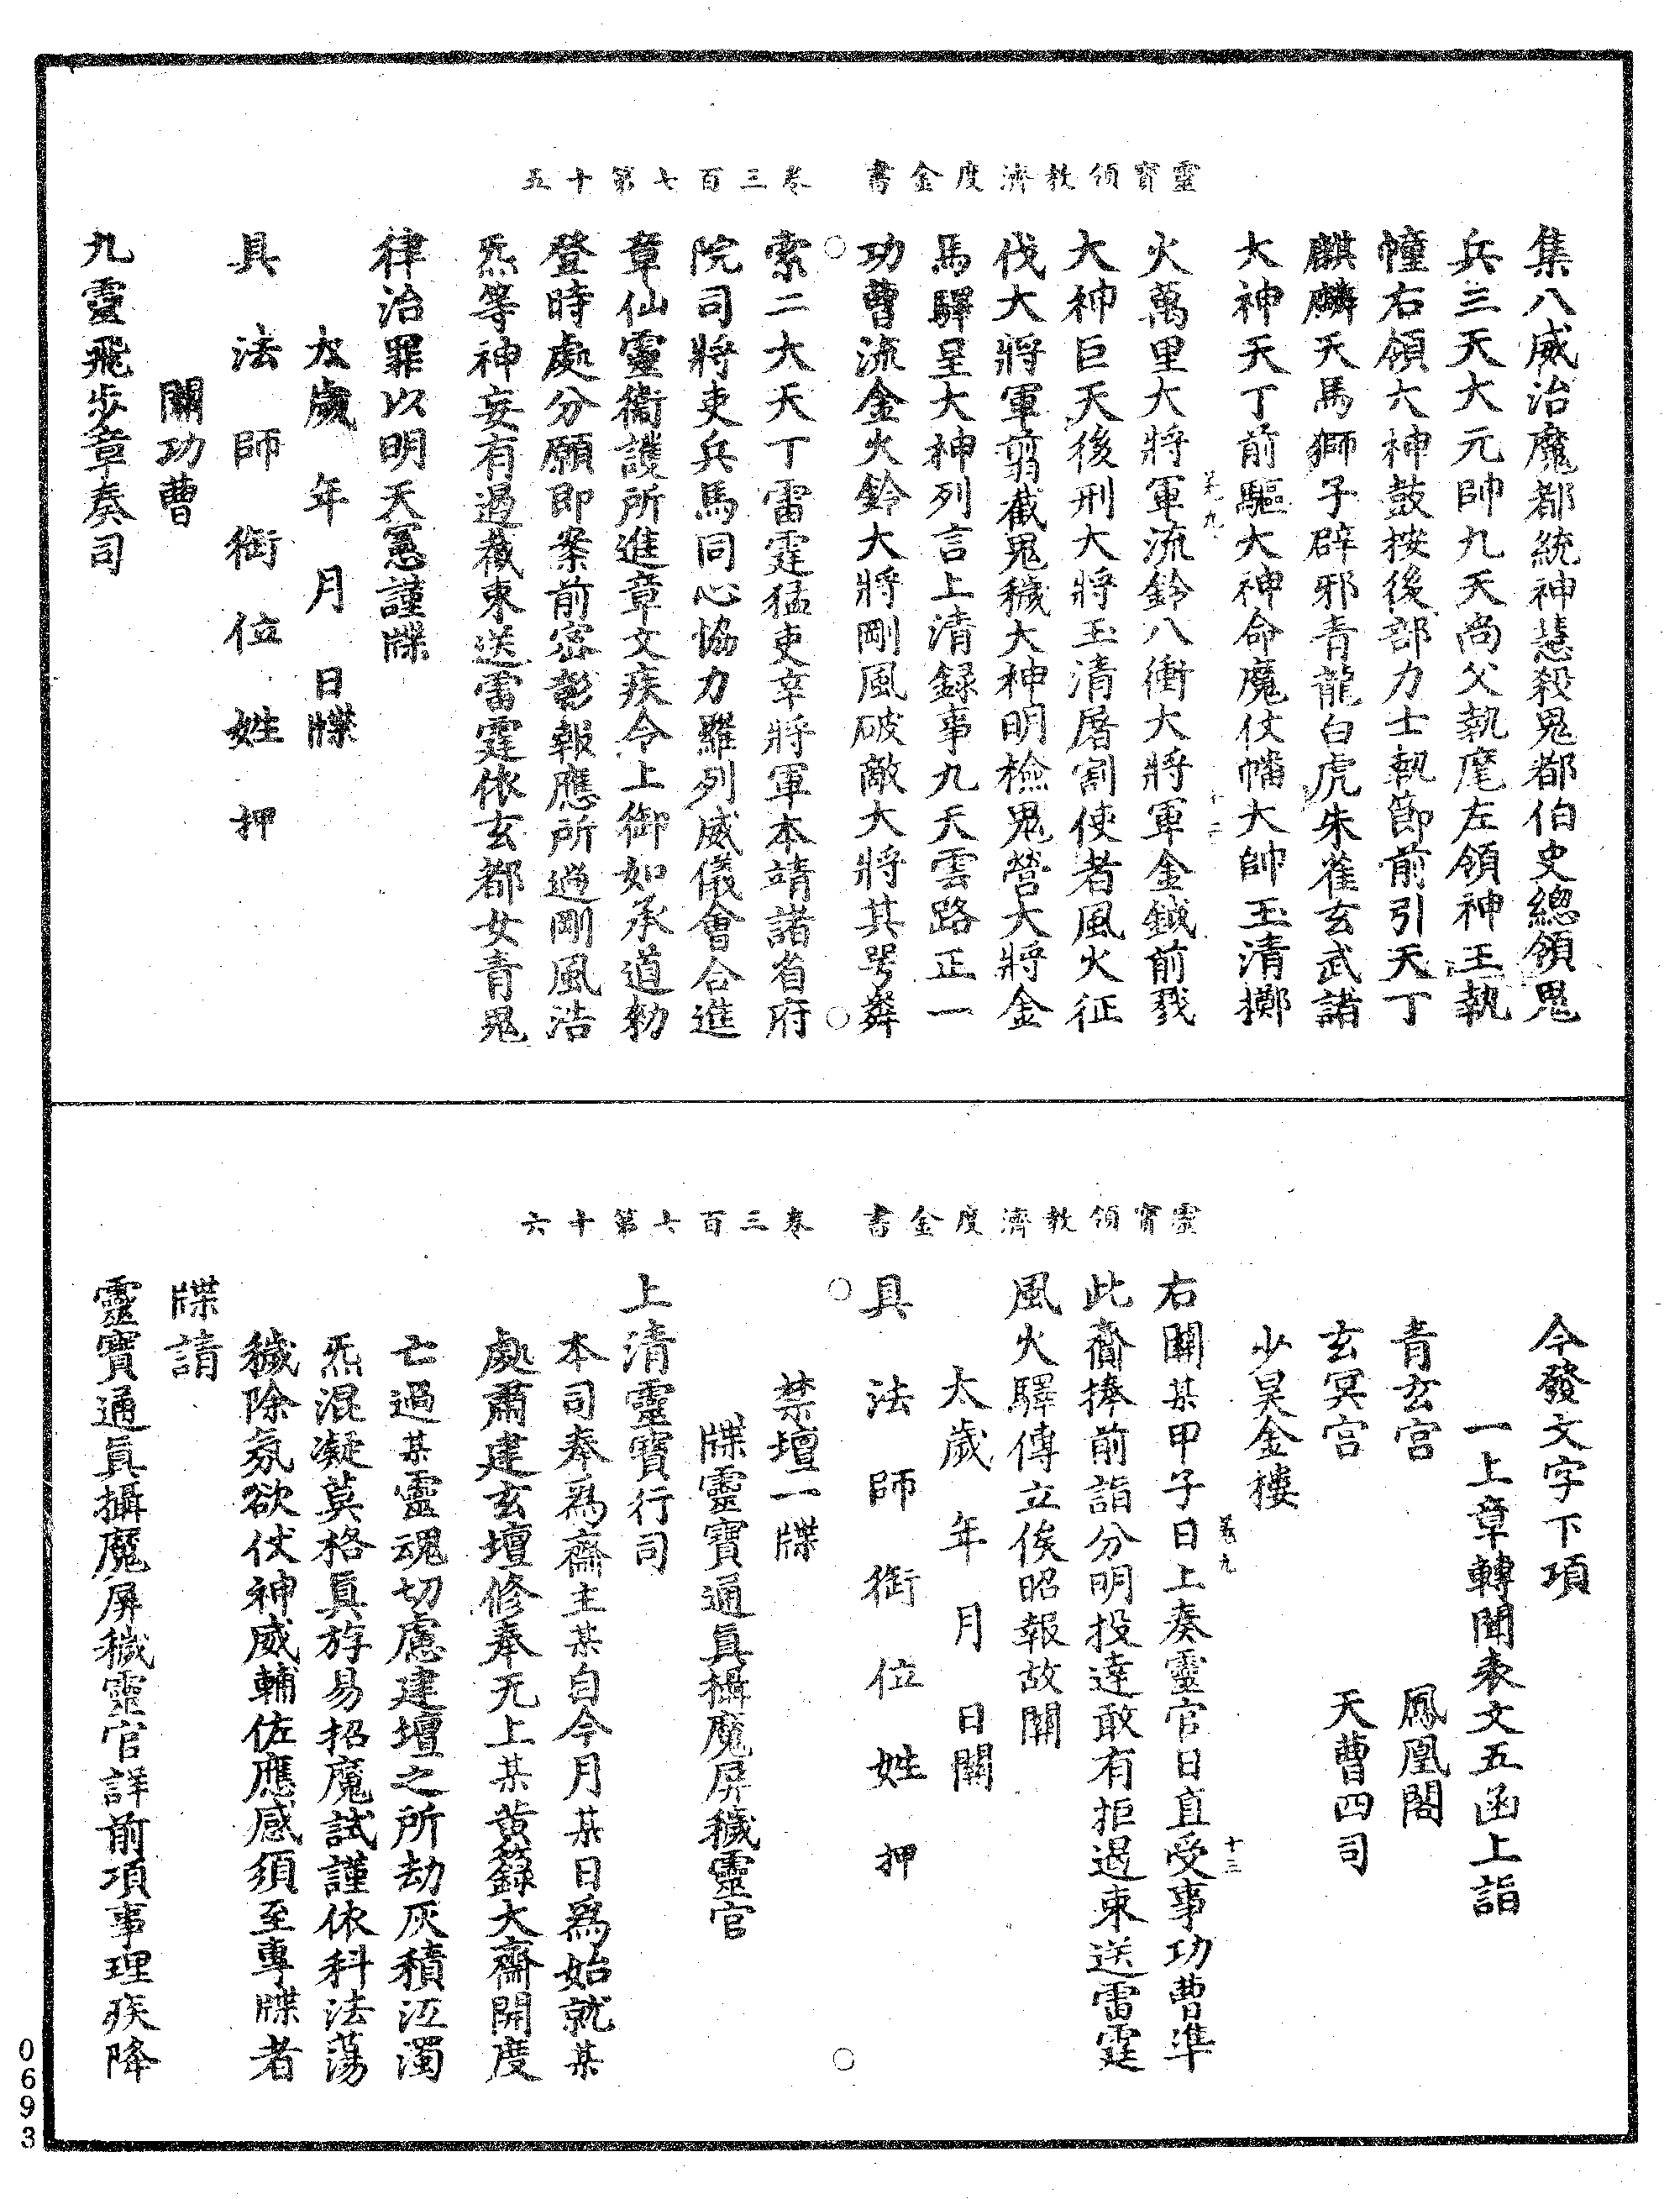 靈寶領教濟度金書　卷三百七第十五
集八威治魔都統神慧殺鬼都伯史總領鬼
兵三天大元帥九天尚父執麾左領神王執
幢右領大神鼓按後部力士執節前引天丁
麒麟天馬獅子辟邪青龍白虎朱雀玄武諸
大神天丁前驅大神命魔仗幡大帥玉清擲
火萬里大將軍流鈴八衝大將軍金鉞前戮
大神巨天後刑大將玉清屠割使者風火征
伐大將軍翦截鬼穢大神明檢鬼營大將金
馬驛呈大神列言上清錄事九天雲路正一
功曹流金火鈴大將剛風破敵大將其咢粦
索二大天丁雷霆猛吏辛將軍本靖諸省府
院司將吏兵馬同心協力羅列威儀會合進
章仙靈衛護所進章文疾令上御如承道勑
登時處分願即案前密彰報應所過剛風浩
炁等神妄有過截束送雷霆依玄都女青鬼
律治罪以明天憲謹牒
太歲　年　月　日牒
具　法　師　銜　位　姓　押
關功曹
九靈飛步章奏司
靈寶領教濟度金書　卷三百七第十六
今發文字下項
一上章轉聞表文五函上詣
青玄宮　　鳳凰閣
玄冥宮　　天曹四司
少昊金樓
右關某甲子日上奏靈官日直受事功曹準
此齎捧前詣分明投達敢有拒遏束送雷霆
風火驛傳立俟昭報故關
太歲　年　月　日關
具　法　師　銜　位　姓　押
禁壇一牒
牒靈寶通眞攝魔屏穢靈官
上清靈寶行司
本司奉爲齋主某自今月某日爲始就某
處肅建玄壇修奉无上某黄籙大齋開度
亡過某靈魂切慮建壇之所劫灰積沍濁
炁混凝莫格眞斿易招魔試謹依科法蕩
穢除氛欲仗神威輔佐應感須至專牒者
牒請
靈寶通眞攝魔屏穢靈官詳前項事理疾降
卷九
十三
0693